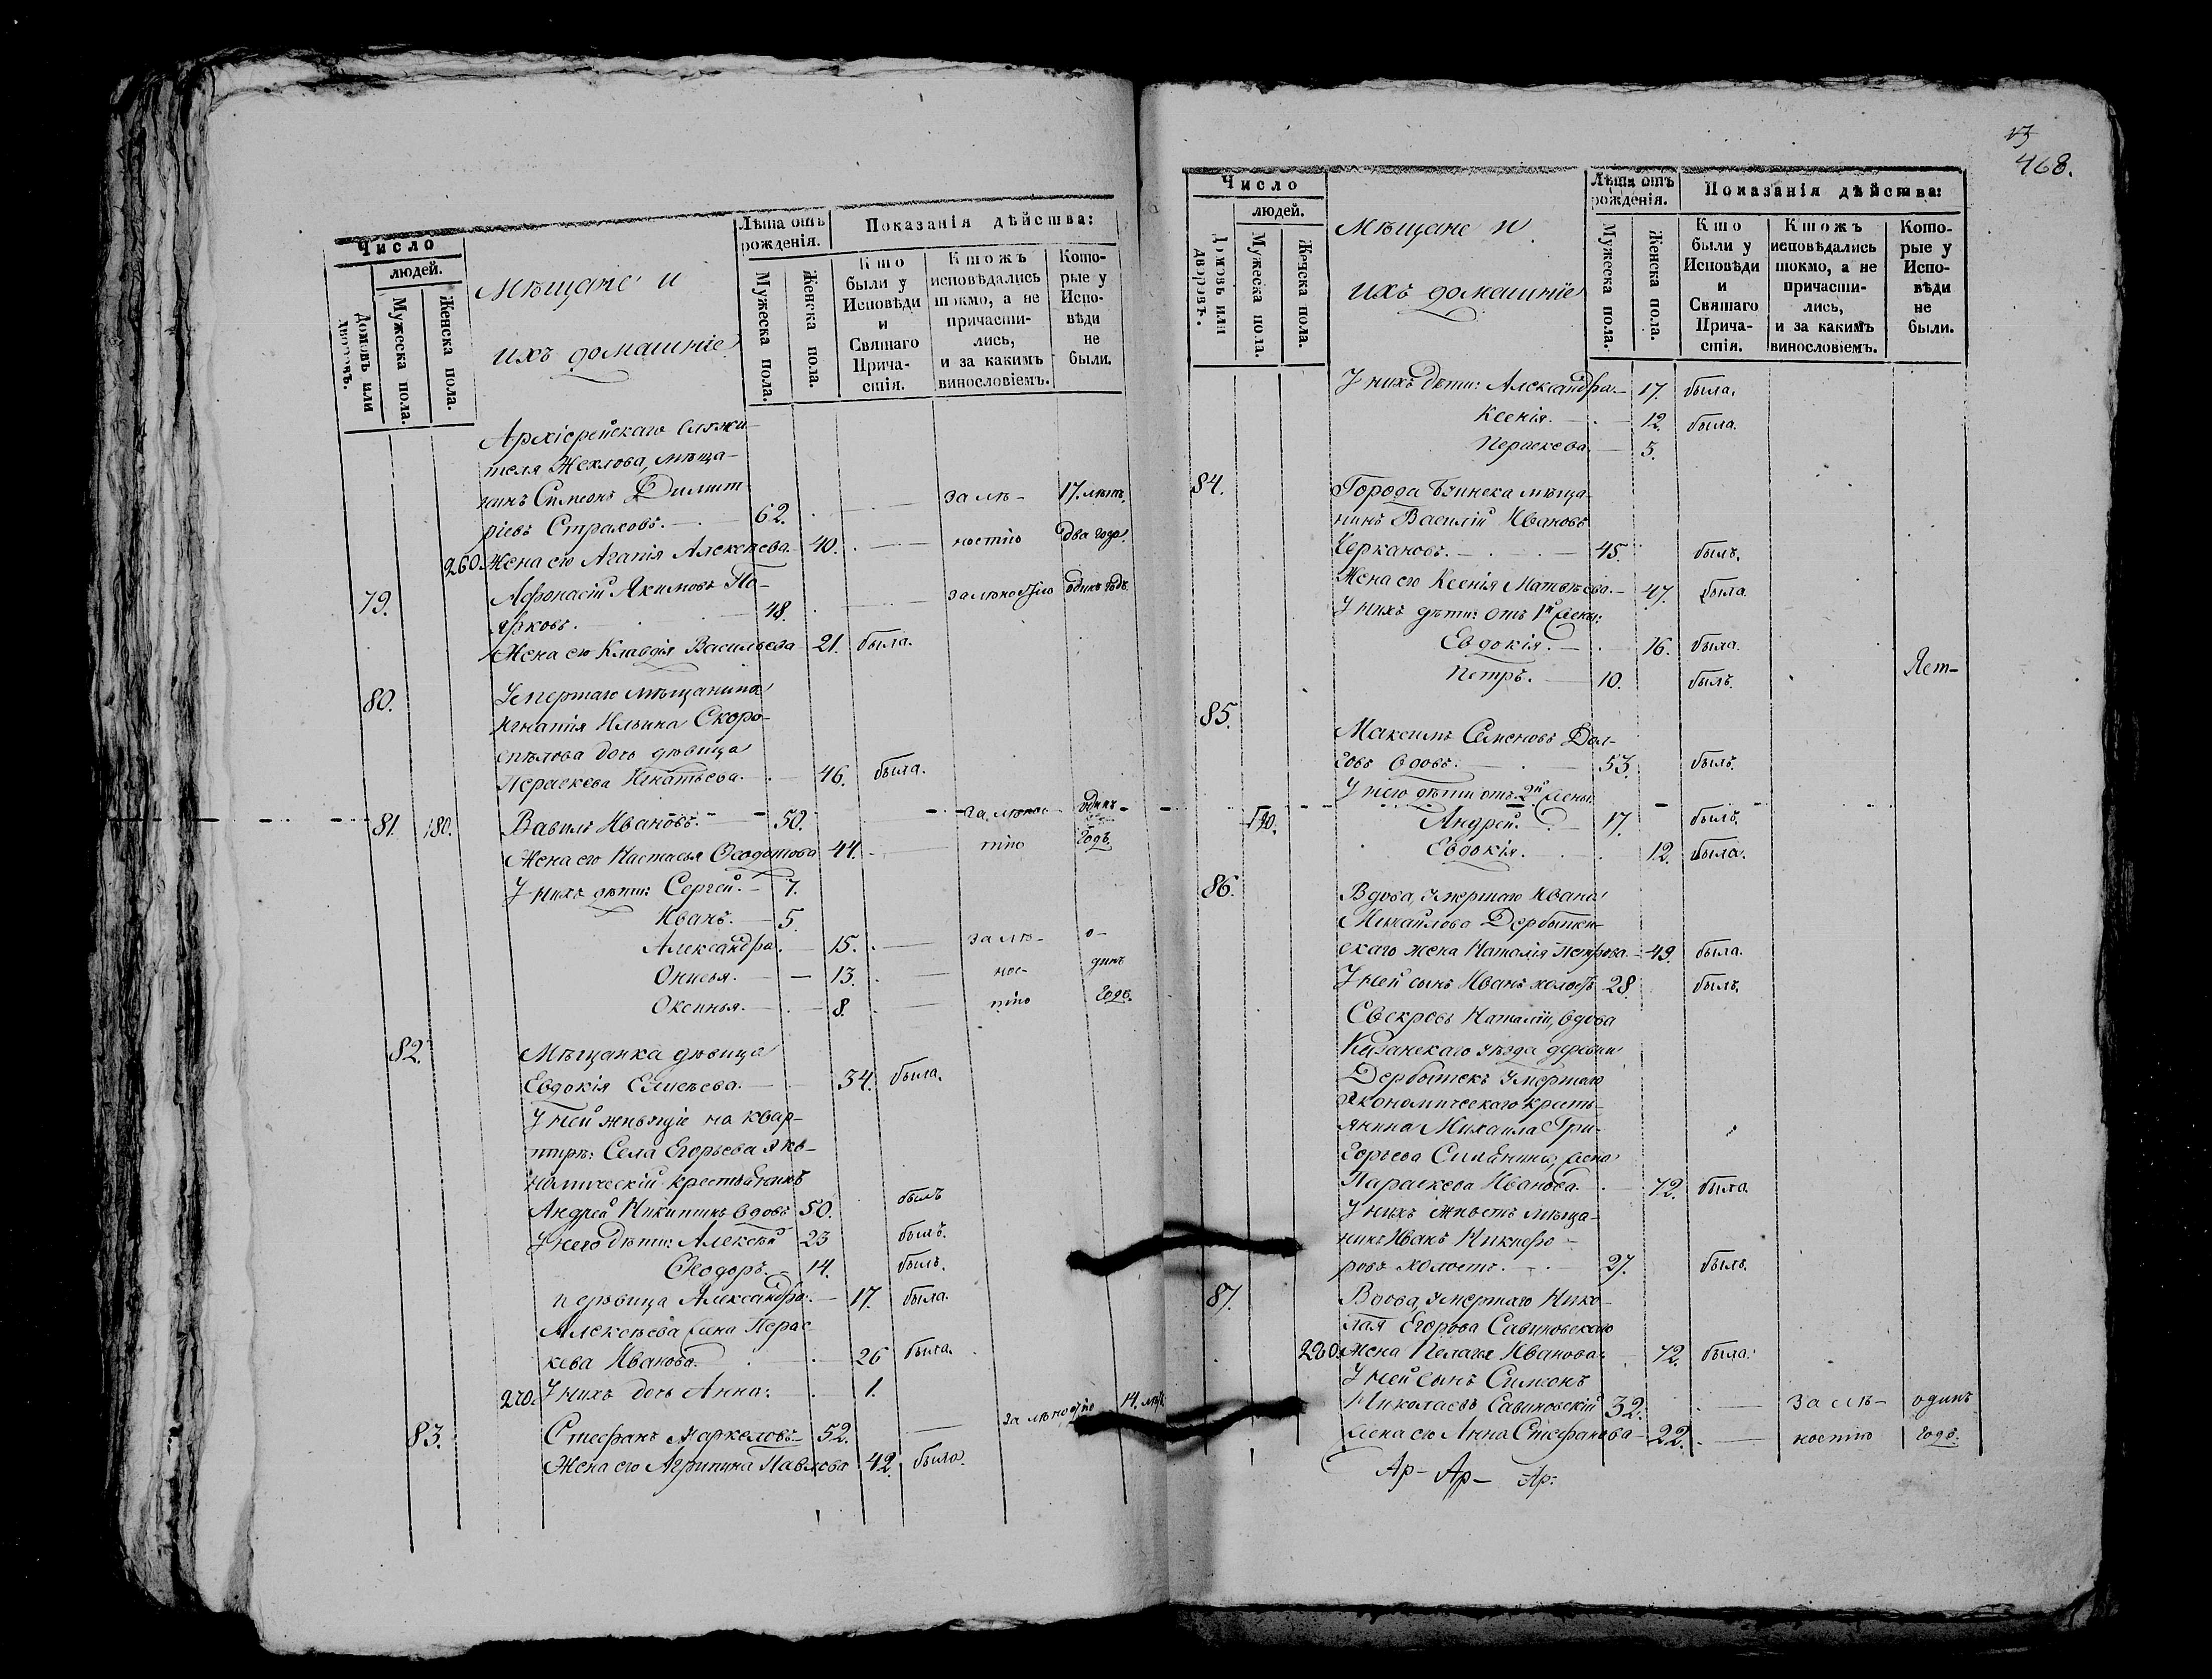 Число
людей.
Домовъ или дворовъ.
Мужеска пола.
Женска пола.
Мѣщане и
ихъ домашніе
Лѣта отъ рожденія.
Мужеска пола.
Женска пола.
Показанія дѣйства:
Кто были у Исповѣди и Святаго Причастія.
Ктожъ исповѣдались токмо, а не причастились, и за какимъ винословіемъ.
Которые у Исповѣди не были.
Архіерейскаго служи-
теля Жехлова, мѣща-
нинъ Симеонъ Димит-
ріевъ Страховъ. 62. за лѣ- 17. лѣтъ
260. Жена его Агапія Алексѣева 40. ностію два года.
79. Афонасій Якимовъ По-
ярковъ. 48. за лѣностію одинъ годъ.
Жена его Клавдія Васильева 21. была.
80. Умершаго мѣщанина
Игнатія Ильина Скоро-
спѣлова дочь дѣвица
Параскева Игнатьева. 46. была.
81. 180. Вавилъ Ивановъ. 50. за лѣнос- одинъ
Жена его Настасья Ѳеодотова 44. тію годъ.
У нихъ дѣти: Сергей. 7.
Иванъ. 5.
Александра. 15. за лѣ- о-
Онисья. 13. нос- динъ
Оксинья. 8. тію годъ.
82. Мѣщанка дѣвица
Евдокія Елисѣева. 34. была.
У ней живущіе на квар-
тирѣ: Села Егорьева эко-
номическій крестьянинъ
Андрей Никитинъ вдовъ 50. былъ
У него дѣти: Алексѣй 23 былъ.
Ѳеодоръ. 14. былъ.
и дѣвица Александра. 17. была.
Алексѣева жена Парас-
кева Иванова. 26 была.
270. У нихъ дочь Анна: 1.
83. Стефанъ Маркеловъ 52. за лѣностію 14. лѣтъ
Жена его Агрипина Павлова 42. была.
468.
Число
людей.
Домовъ или дворовъ.
Мужеска пола.
Женска пола.
Мѣщане и
ихъ домашніе
Лѣта отъ рожденія.
Мужеска пола.
Женска пола.
Показанія дѣйства:
Кто были у Исповѣди и Святаго Причастія.
Ктожъ исповѣдались токмо, а не причастились, и за какимъ винословіемъ.
Которые у Исповѣди не были.
У нихъ дѣти: Александра 17. была.
Ксенія. 12. была.
Параскева. 5.
84. Города мѣща-
нинъ Василій Ивановъ
Черкановъ. 45. былъ.
Жена его Ксенія Матвѣева. 47. была.
У нихъ дѣти отъ 1й жены:
Евдокія. 16. была.
Петръ. 10. былъ.
85. Максимъ Семеновъ Дол-
говъ вдовъ. 53. былъ.
У него дѣти отъ 2й жены
190. Андрей. 17. былъ.
Евдокія. 12. была.
86. Вдова, умершаго Ивана
Михайлова Дербытен-
скаго жена Наталія Петрова. 49. была.
У ней сынъ Иванъ холостъ 28. былъ.
Свекровь Наталіи, вдова
Казанскаго уѣзда деревни
Дербытекъ умершаго
экономическаго кресть-
янина Михаила Гри-
горьева жена
Параскева Иванова. 72. была.
У нихъ живетъ мѣща-
нинъ Иванъ Никифо-
ровъ холостъ. 27. былъ.
87. Вдова, умершаго Нико-
лая Егорова Савиновскаго
280. Жена Пелагея Иванова. 72. была.
У ней сынъ Симеонъ
Николаевъ Савиновскій 32. за лѣ- одинъ
жена его Анна Стефанова 22. ностію годъ.
Ар- Ар- Ар.